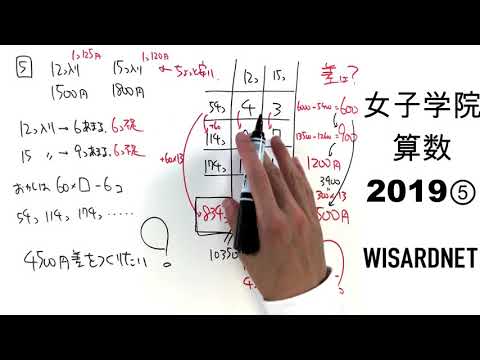 5
12コ入り 15コ入り
1コ125円 1コ120円
1500円 1800円
← ちょっと安い
12コ入り → 6あまる、6コ不足
15 〃 → 9あまる、6コ不足
おかしは 60×□-6コ
54コ、114コ、174コ、……
4500円差をつくりたい!
12コ 15コ
54コ 4 3
+60
114コ
174コ
+60×13
834コ
10350
差は?
6000-5400=600
=900
1200円
3900
300×13
女子学院
算数
2019⑤
WISARDNET